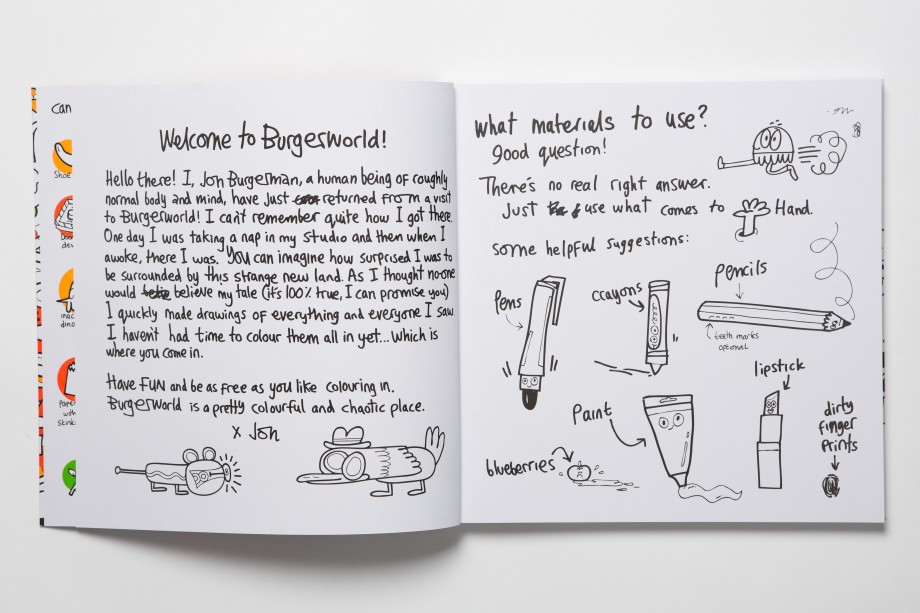 can
Shoe
Welcome to Burgerworld!
Hello there! I, Jon Burgerman, a human being of roughly
normal body and mind, have just returned from a visit
to Burgerworld! I can't remember quite how I got there.
One day I was taking a nap in my studio and then when I
awoke, there I was. You can imagine how surprised I was to
be surrounded by this strange new land. As I thought no-one
would believe my tale (it's 100% true, I can promise you)
I quickly made drawings of everything and everyone I saw.
I haven't had time to colour them all in yet... which is
where you come in.
Have FUN and be as free as you like colouring in.
Burgerworld is a pretty colourful and chaotic place.
x Jon
What materials to use?
good question!
There's no real right answer.
Just use what comes to Hand.
Some helpful suggestions:
Pens
crayons
pencils
teeth marks
optional
Paint
lipstick
blueberries
dirty
finger
prints